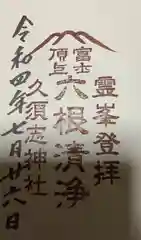 靈峯登拝
富士
頂上
六根清浄
久須志神社
令和四年七月廿六日